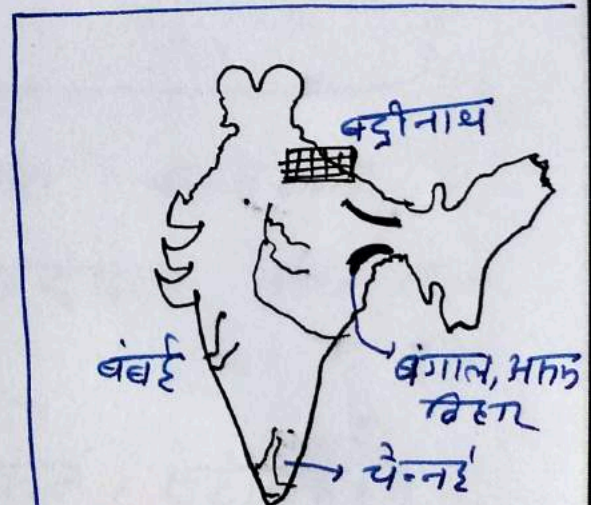 बद्रीनाथ
बंबई
बंगाल,
बिहार
चेन्नई